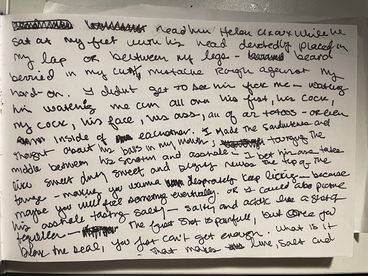 Read him Helen Cixoux while he
sat at my feet with his head devotedly placed in
my lap or between my legs - beard
berried in my cunt, mustache rough against my
hard-on. I didnt get to see him fuck me - watching
him watching me cum all over his fist, his cock,
my cock, his face, his ass, all of our tattoos - or even
inside of eachother. I made the sandwiches and
thought about his balls in my mouth, tarrying the
middle between his scrotum and asshole - I bet his ass tastes
like sweet and sweet and
- making you wanna desperately keep licking - because
maybe you will feel something eventually. or is
his asshole tasting salty - salty and acidic like a shot of
tequilla - The first shot is painfull, but once you
the seal, you just can't get enough. what is it
that makes lime, salt and